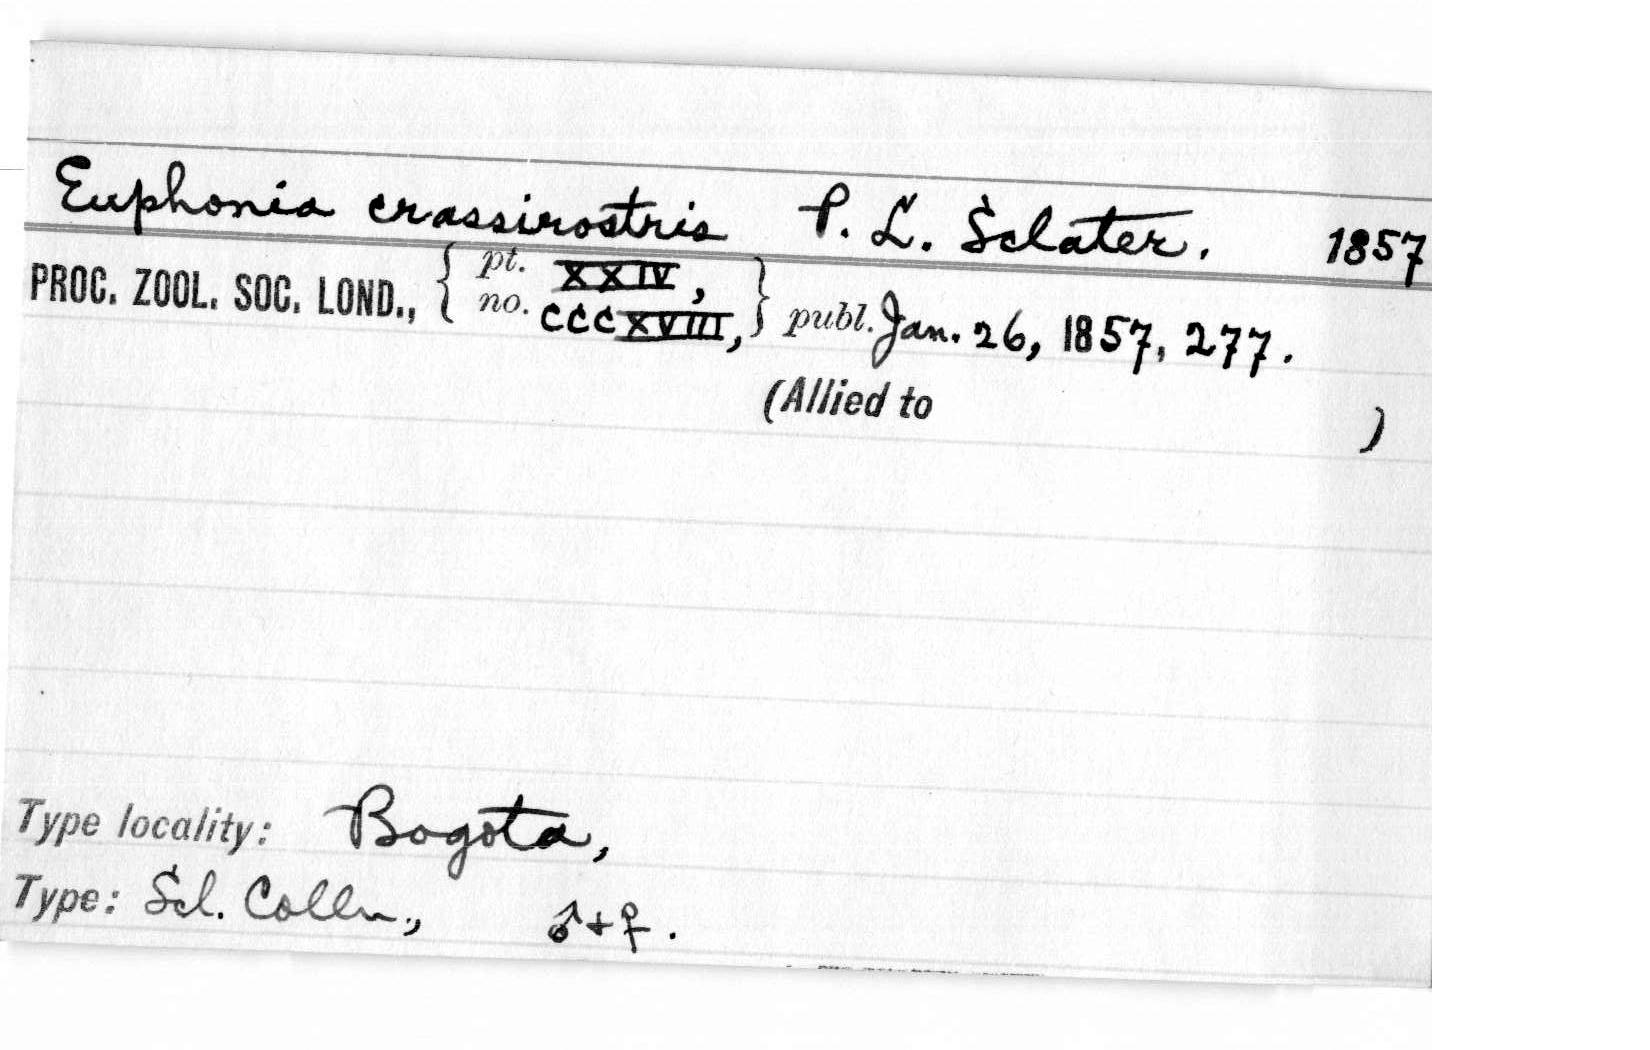 Euphonia crassirostris P. L. Sclater. 1857
PROC. ZOOL. SOC. LOND., { pt. XXIV, } publ. Jan. 26, 1857, 277.
no. CCCXVIII,
(Allied to )
Type locality: Bogota,
Type: Scl. Colln., ♂+♀.